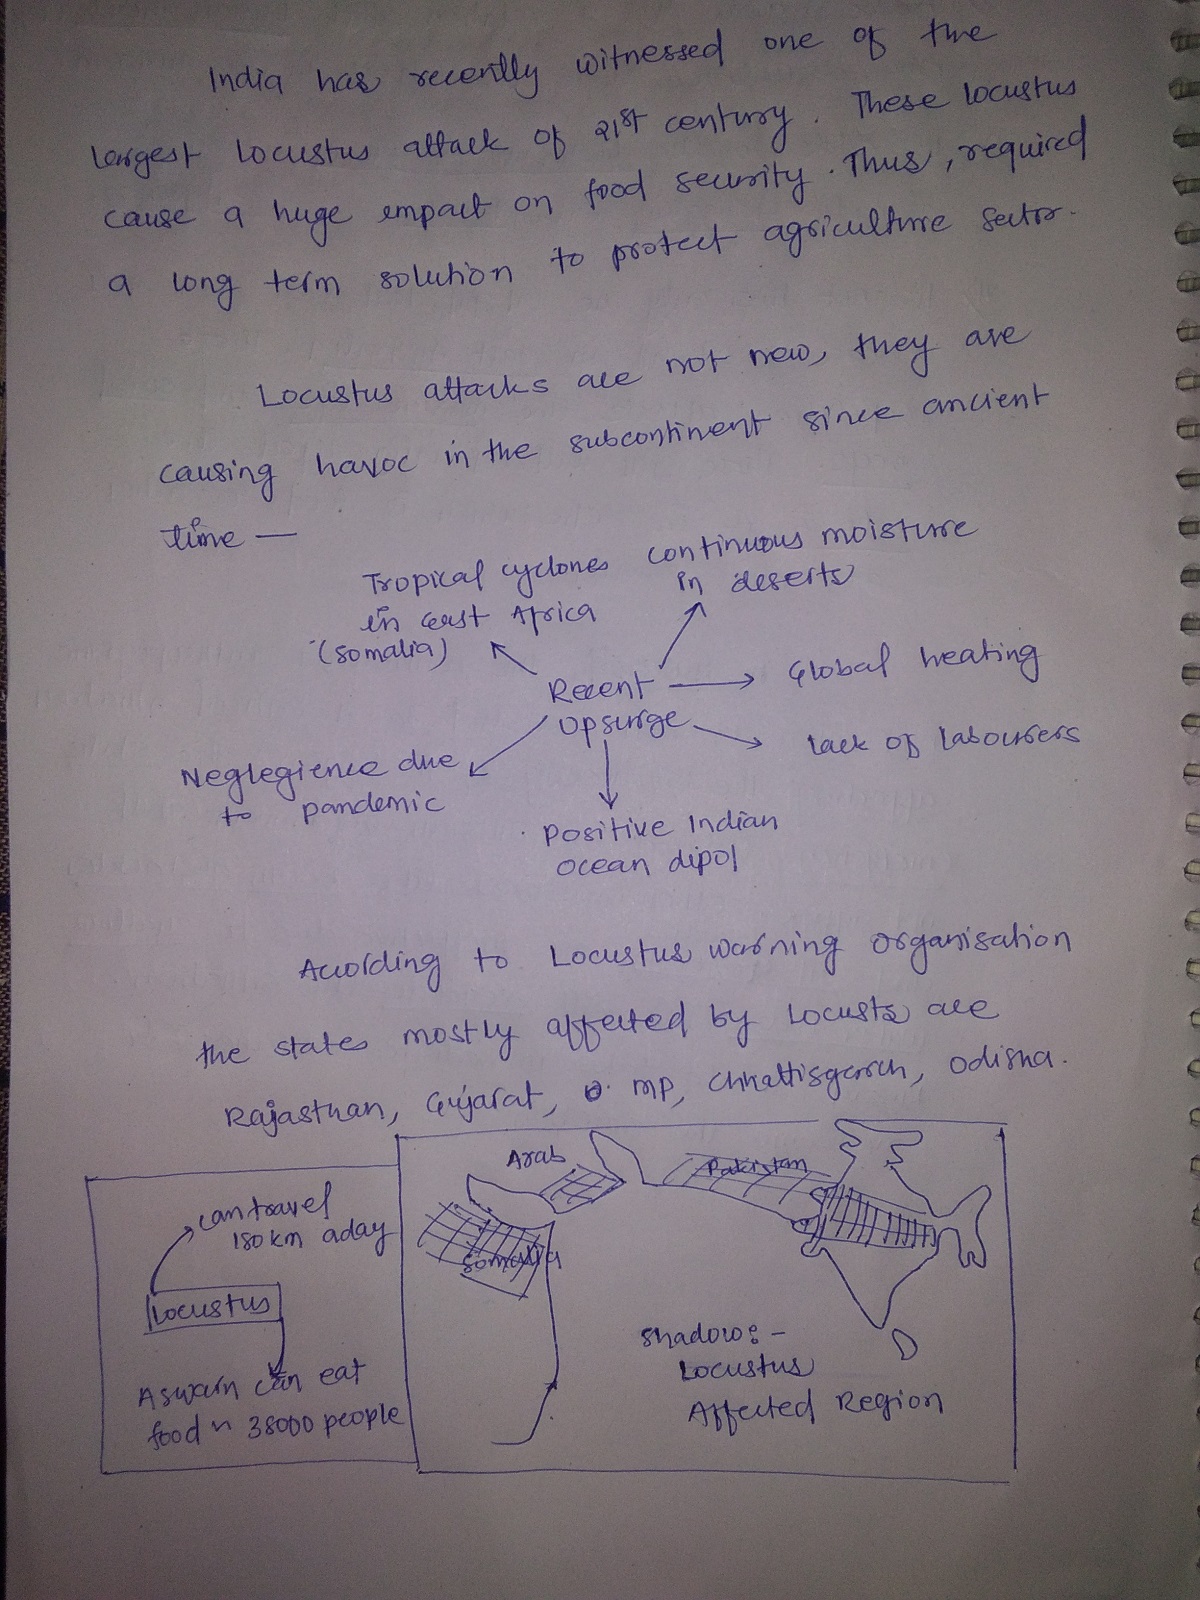 India has recently witnessed one of the
largest locustus attack of 21st century. These locustus
cause a huge impact on food security. Thus, required
a long term solution to protect agriculture sector.
Locustus attacks are not new, they are
causing havoc in the subcontinent since ancient
time —
Tropical cyclones
in east Africa
(somalia)
continuous moisture
in deserts
Recent
upsurge
Global heating
lack of labourers
Neglegience due
to pandemic
Positive Indian
ocean dipol
According to Locustus warning organisation
the states mostly affected by Locusts are
Rajasthan, Gujarat, MP, Chhattisgarh, Odisha.
can travel
150 km a day
Locustus
A swarm can eat
food 38000 people
Arab
Pakistan
Somalia
Shadow:-
Locustus
Affected Region